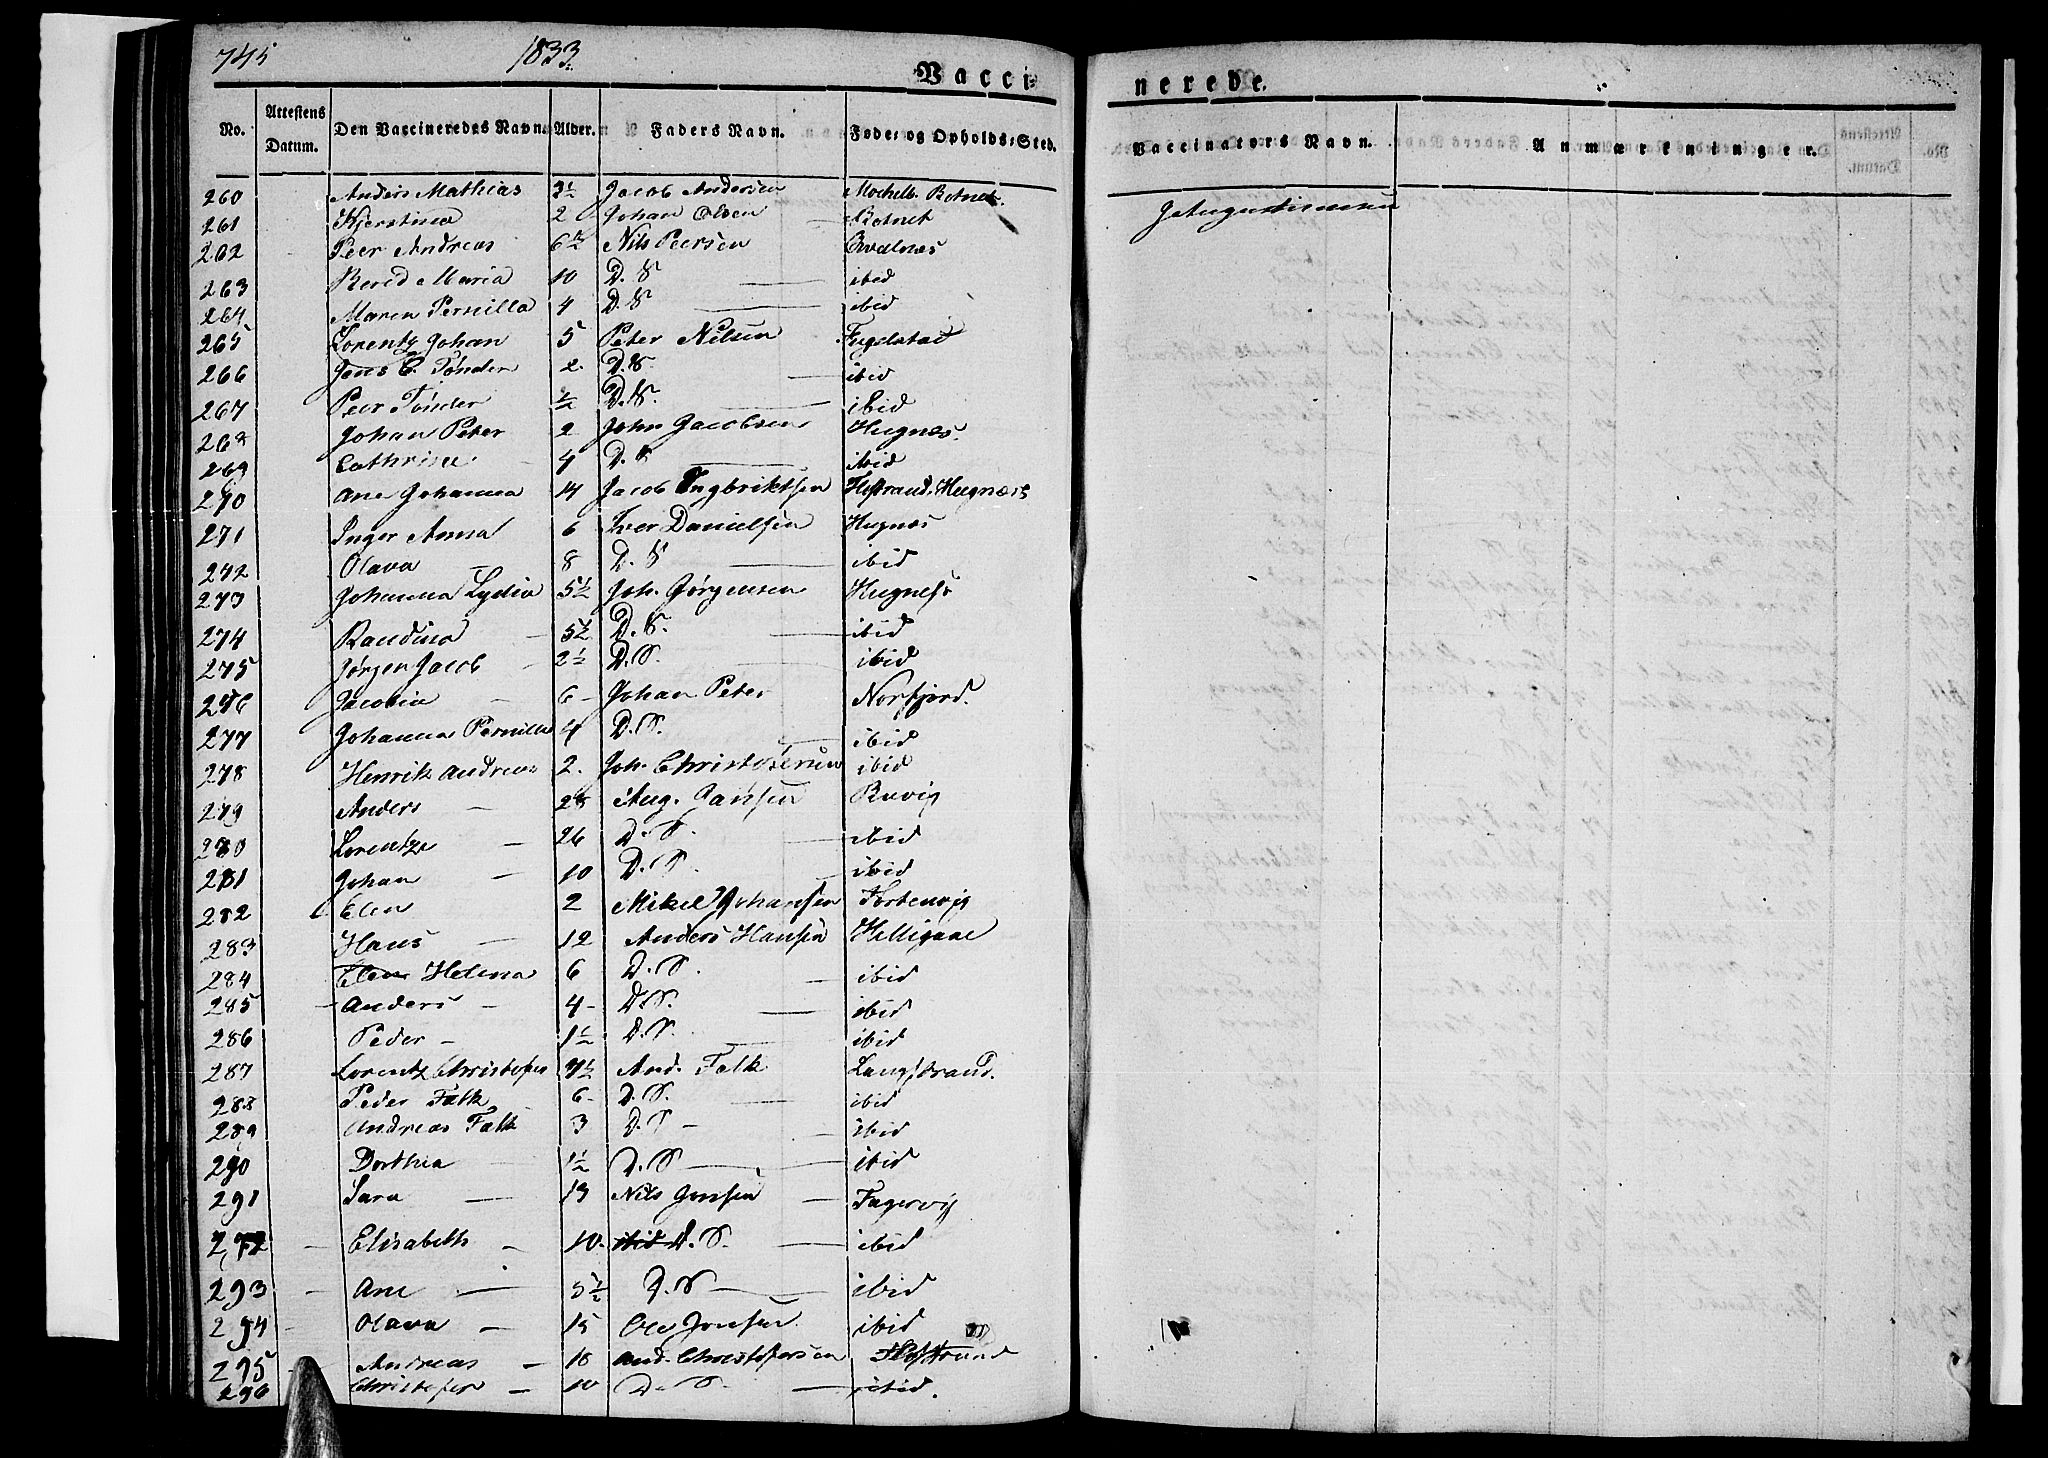 745 1833.
Vacci
nerede.
No. Attestens Datum. Den Vaccineredes Navn. Alder. Faders Navn. Føde- og Opholds-Sted.
Vaccinators Navn. Anmærkninger.
260 Anders Mathias 3½ Jacob Andersen Botnet.
261 Kjerstina 2 Johan Olsen Botnet
262 Peer Andreas 6½ Nils Peersen
263 Bered Maria 10 D. S ibid
264 Maren Pernilla 4 D. S ibid
265 Lorentz Johan 5 Peter Nilsen Fugelstad
266 Jens C. Tønder 2. D. S. ibid
267 Peer Tønder ½ D. S. ibid
268 Johan Peter 2 John Jacobsen Hugnes.
269 Cathrine 4 D. S ibid
270 Ane Johanna 14 Jacob Ingbriktsen Hugnæs
271 Inger Anna 6 Iver Danielsen Hugnæs
272 Olava 8 D. S ibid
273 Johanna Lydia 5½ Joh. Jørgensen Hugness
274 Randina 5½ D. S. ibid
275 Jørgen Jacob 2½ D. S. ibid
276 Jacobia 6 Johan Peter Norfjord.
277 Johanna Pernilla 4 D. S. ibid
278 Henrik Andreas 2. Joh. Christofersen ibid
279 Anders 28 Aug. Jansen
280 Lorentze 26 D. S. ibid
281 Johan 10 D. S. ibid
282 Elen 2 Mikel Johansen
283 Hans 12 Anders Hansen Helligaae
284 Elen Helena 6 D. S. ibid
285 Anders 4 D. S. ibid
286 Peder 1½ D. S. ibid
287 Lorentz Christofer 7½ And. Falk Langstrand.
288 Peder Falk 6 D. S. ibid
289 Andreas Falk 3 D. S ibid
290 Dorthea 1½ D. S ibid
291 Sara 13 Nils Jonsen Fagervig
292 Elisabeth 10. ibid D. S. ibid
293 Ane 5½ D. S ibid
294 Olava 15 Ole Jonsen ibid
295 Andreas 18 And. Christofersen
296 Christofer 10 D. S. ibid.